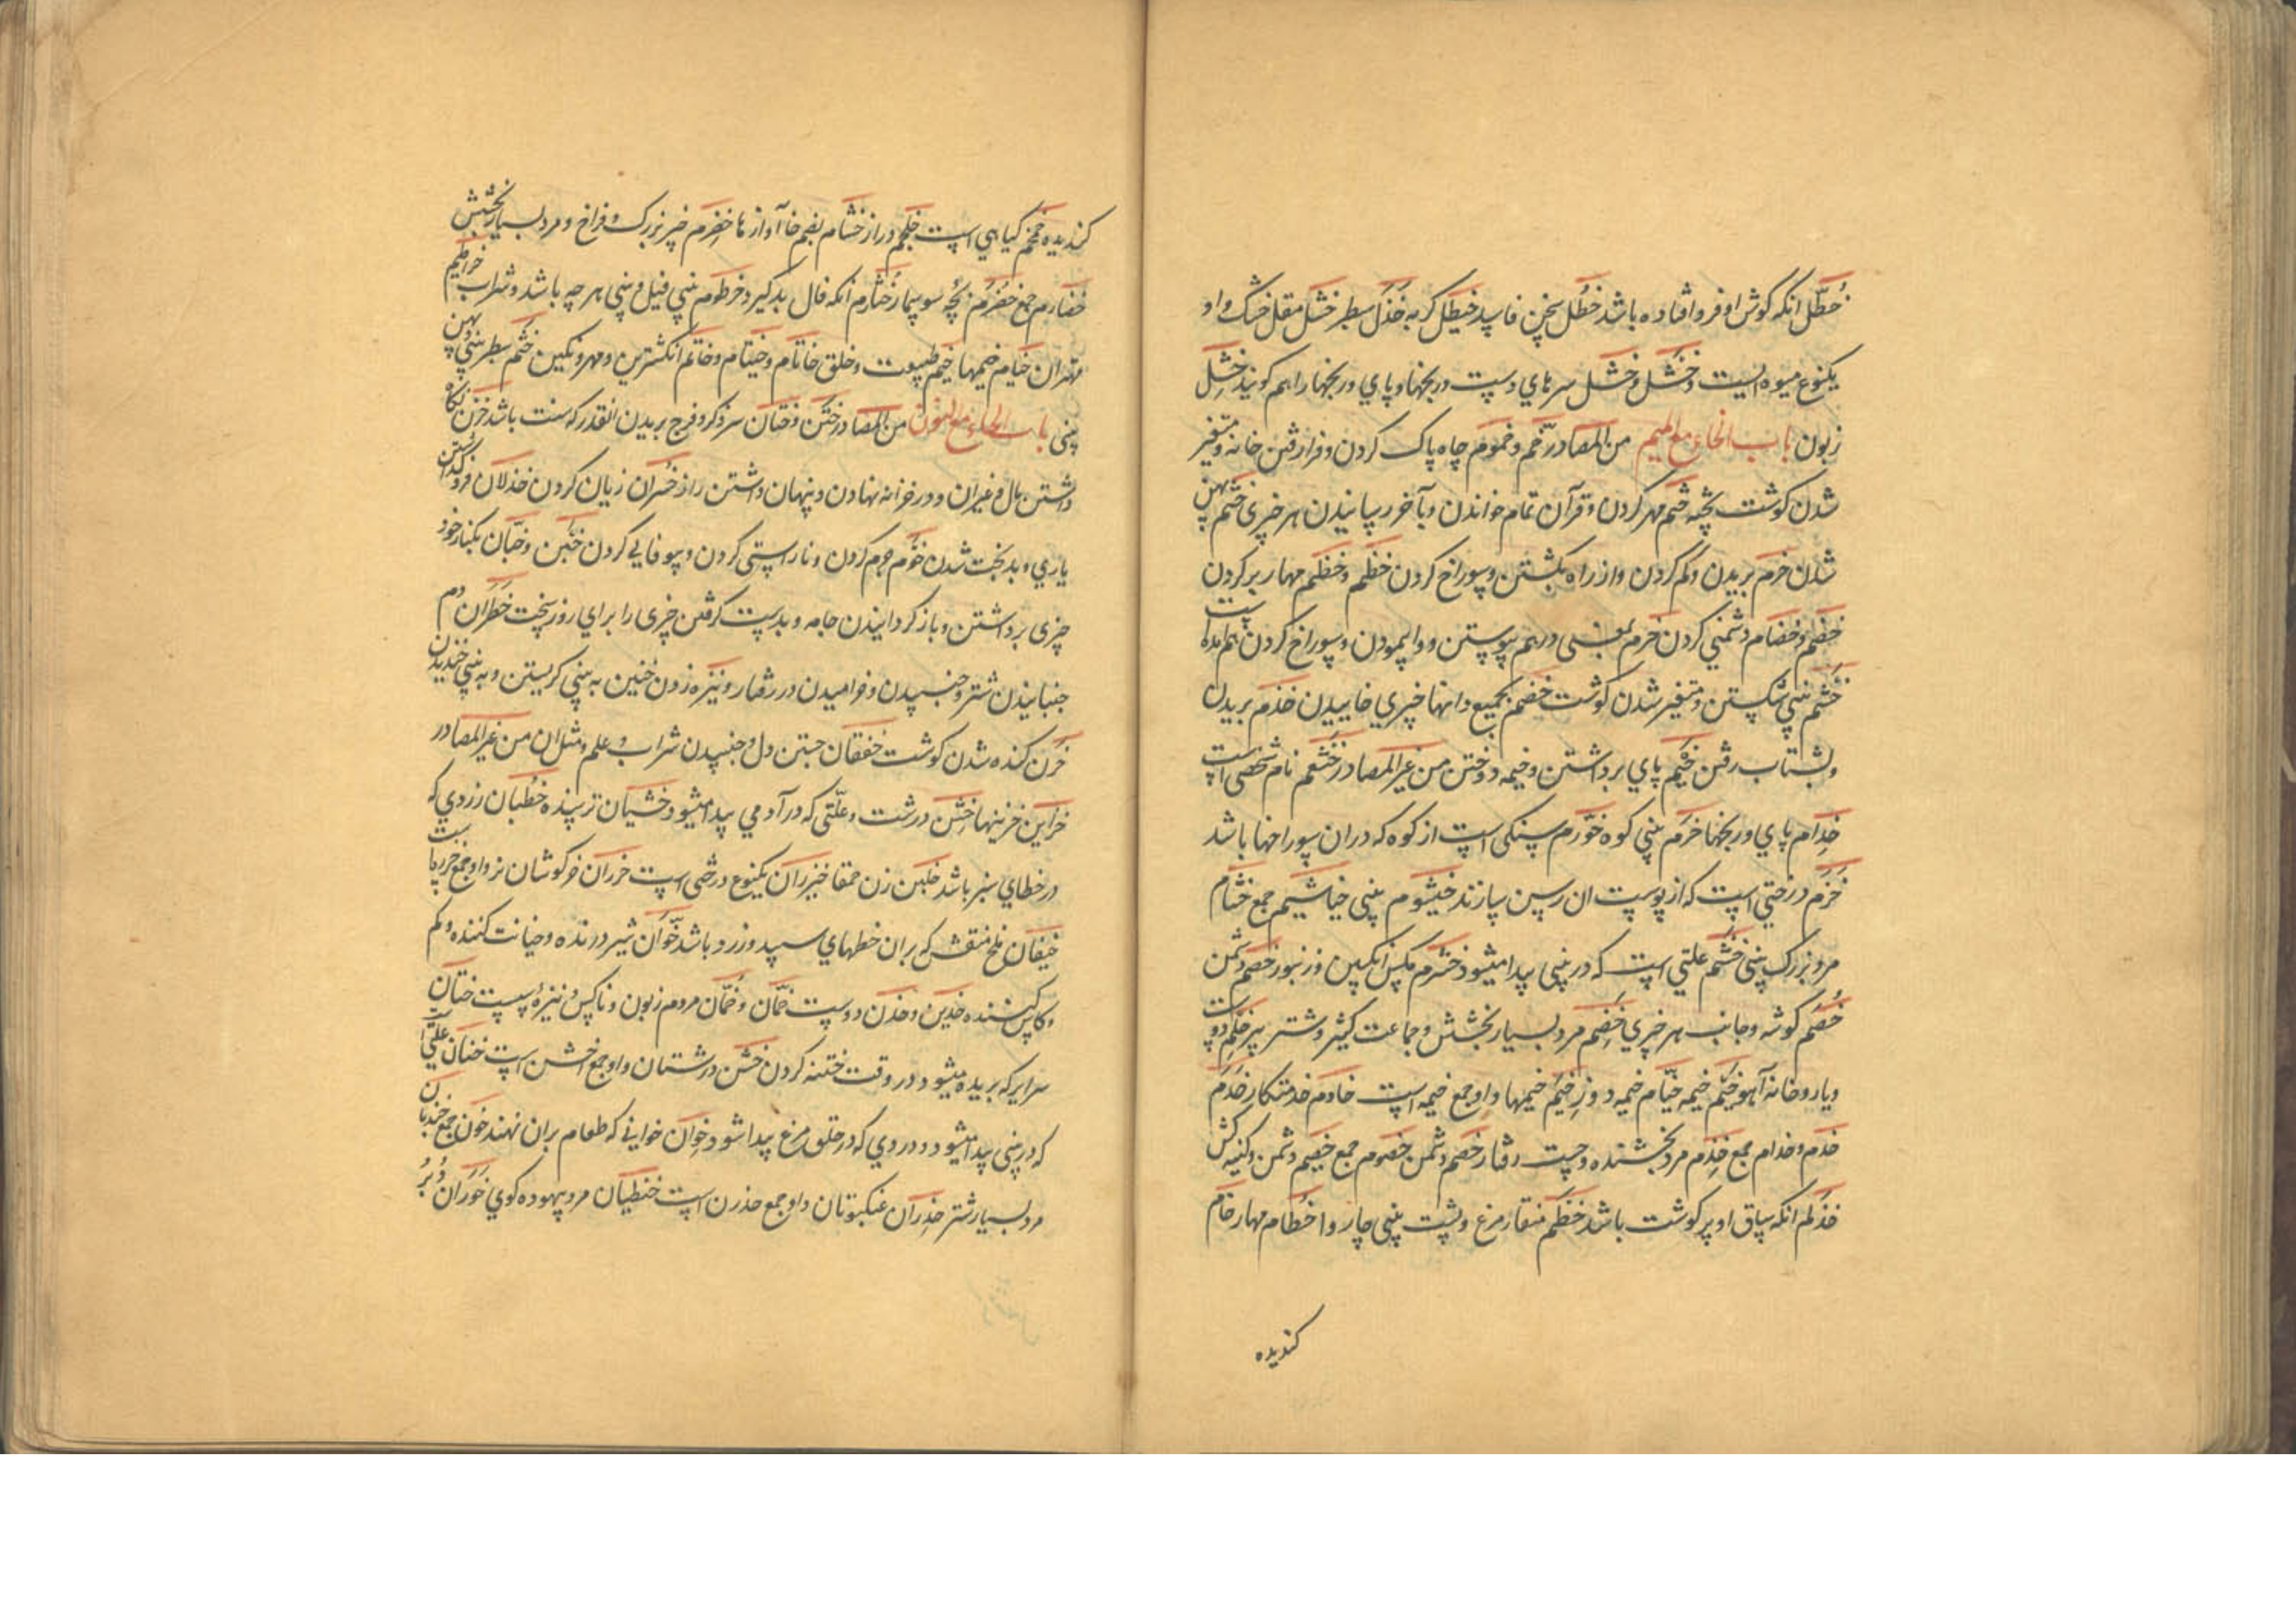 خُطّل انکه کوش او فرو افتاده باشد خطل سخن فاسد خیطل کربه خذل سطبر خشل مقل خشک و او
یکنوع میوه ایست و خشل و خشل سرهاي دست ورنجنها و پاي ورنجنها را هم کویند خشل
زبون باب الخاء مع المیم من المصادر خم و خموم چاه پاک کردن و فرا رفتن خانه و متغیر
شدن کوشت پخته ختم مهر کردن و قرآن تمام خواندن و بآخر رسانیدن هر چیزی خثم پهن
شدن خرم بریدن و کم کردن و از راه بکشتن و سوراخ کردن خطم و خظم مهار بر کردن
خصم و خصام دشمني کردن خرم درهم پیوستن و واپیمودن و سوراخ کردن
خشم بیني شکستن و متغیر شدن کوشت خضم بجمیع دانها چیزي خاییدن خذم بریدن
و بشتاب رفتن خیم پاي برداشتن و خیمه دوختن من غیر المصادر خثعم نام شخصی است
خدام پاي ورنجنها خرم بیني کوه خورم سنکی است از کوه که دران سوراخها باشد
خزم درختي است که از پوست ان رسن سازند خیشوم بینی خیاشیم جمع خشام
مرد بزرک بینی خشم علتي است که در بینی پیدا میشود خشرم مکس انکبین و زنبور خصم دشمن
خصم کوشه و جانب هر چیزي خضم مرد بسیار بخشش و جماعت کثیر و شتر پیر خلم دوست
و یار و خانه آهو خیم خیمه خیام خیمه دوز خیم خیمها و او جمع خیمه است خادم خدمتکار خدم
خدم و خدام جمع خذم مرد بخشنده و چست رفتار خصم دشمن خصوم جمع خصیم دشمن و کنیه کش
خدلم انکه ساق او پر کوشت باشد خطم منقار مرغ و پشت بینی چاروا خطام مهار خام
کندیده
کندیده خمخم کیاهي است خلجم دراز خشام بضم خا آواز ها خضرم چیز بزرک و فراخ و مرد بسیار بخشش
خضارم جمع خضرم بچه سوسمار خثارم انکه فال بد کیرد خرطوم بیني فیل و بینی هر چه باشد و شراب خراطیم
مهتران خیام خیمها خیم طبیعت و خلق خاتام و خیتام و خاتم انکشترین و مهر و نکین خثم سطبر بینی پهن
بینی باب الخاء مع النون من المصادر ختن و ختان سر ذکر و فرج بریدن انقدر که سنت باشد خزن نکاه
داشتن مال و غیران و در خزانه نهادن و پنهان داشتن راز خسران زیان کردن خذلان فرو کذاشتن
یاري و بدبخت شدن خوم جرم کردن و ناراستی کردن و بیوفایي کردن خبن و خبان بکنار خود
چیزی برداشتن و باز کردانیدن جامه و بدست کرفتن چیزی را براي روز سخت خطران دم
جنبانیدن شتر و جنبیدن و خرامیدن در رفتار و نیزه زدن خنین به بینی کریستن و به بینی خندیدن
خزن کنده شدن کوشت خفقان جستن دل و جنبیدن شراب و علم و مثل ان من غیر المصادر
خزاین خزینها خشن درشت و علّتی که در آدمي پیدا میشود خشیان ترسنده خطبان زردي که
در خطهاي سبز باشد خلبن زن حمقا خیزران یکنوع درختی است خزران خرکوشان نر و او جمع خزر است
خیفان ملخ منقش که بران خطهاي سپید و زرد باشد خوان شیر درنده و خیانت کننده و کم
و کاس کننده خدین و خدن دوست خمان و خمان مردم زبون و ناکس و نیزه سست ختان
سر ایر که بریده میشود در وقت ختنه کردن خشن درشتان و او جمع اخشن است خنان علّتي
که در بینی پیدا میشود و دردي که در حلق مرغ پیدا شود خوان خوانی که طعام بران نهند خون جمع خندبان
مرد بسیار شتر خدران عنکبوتان و او جمع خدرن است خنظیان مرد بیهوده کوي خوران دُبُر